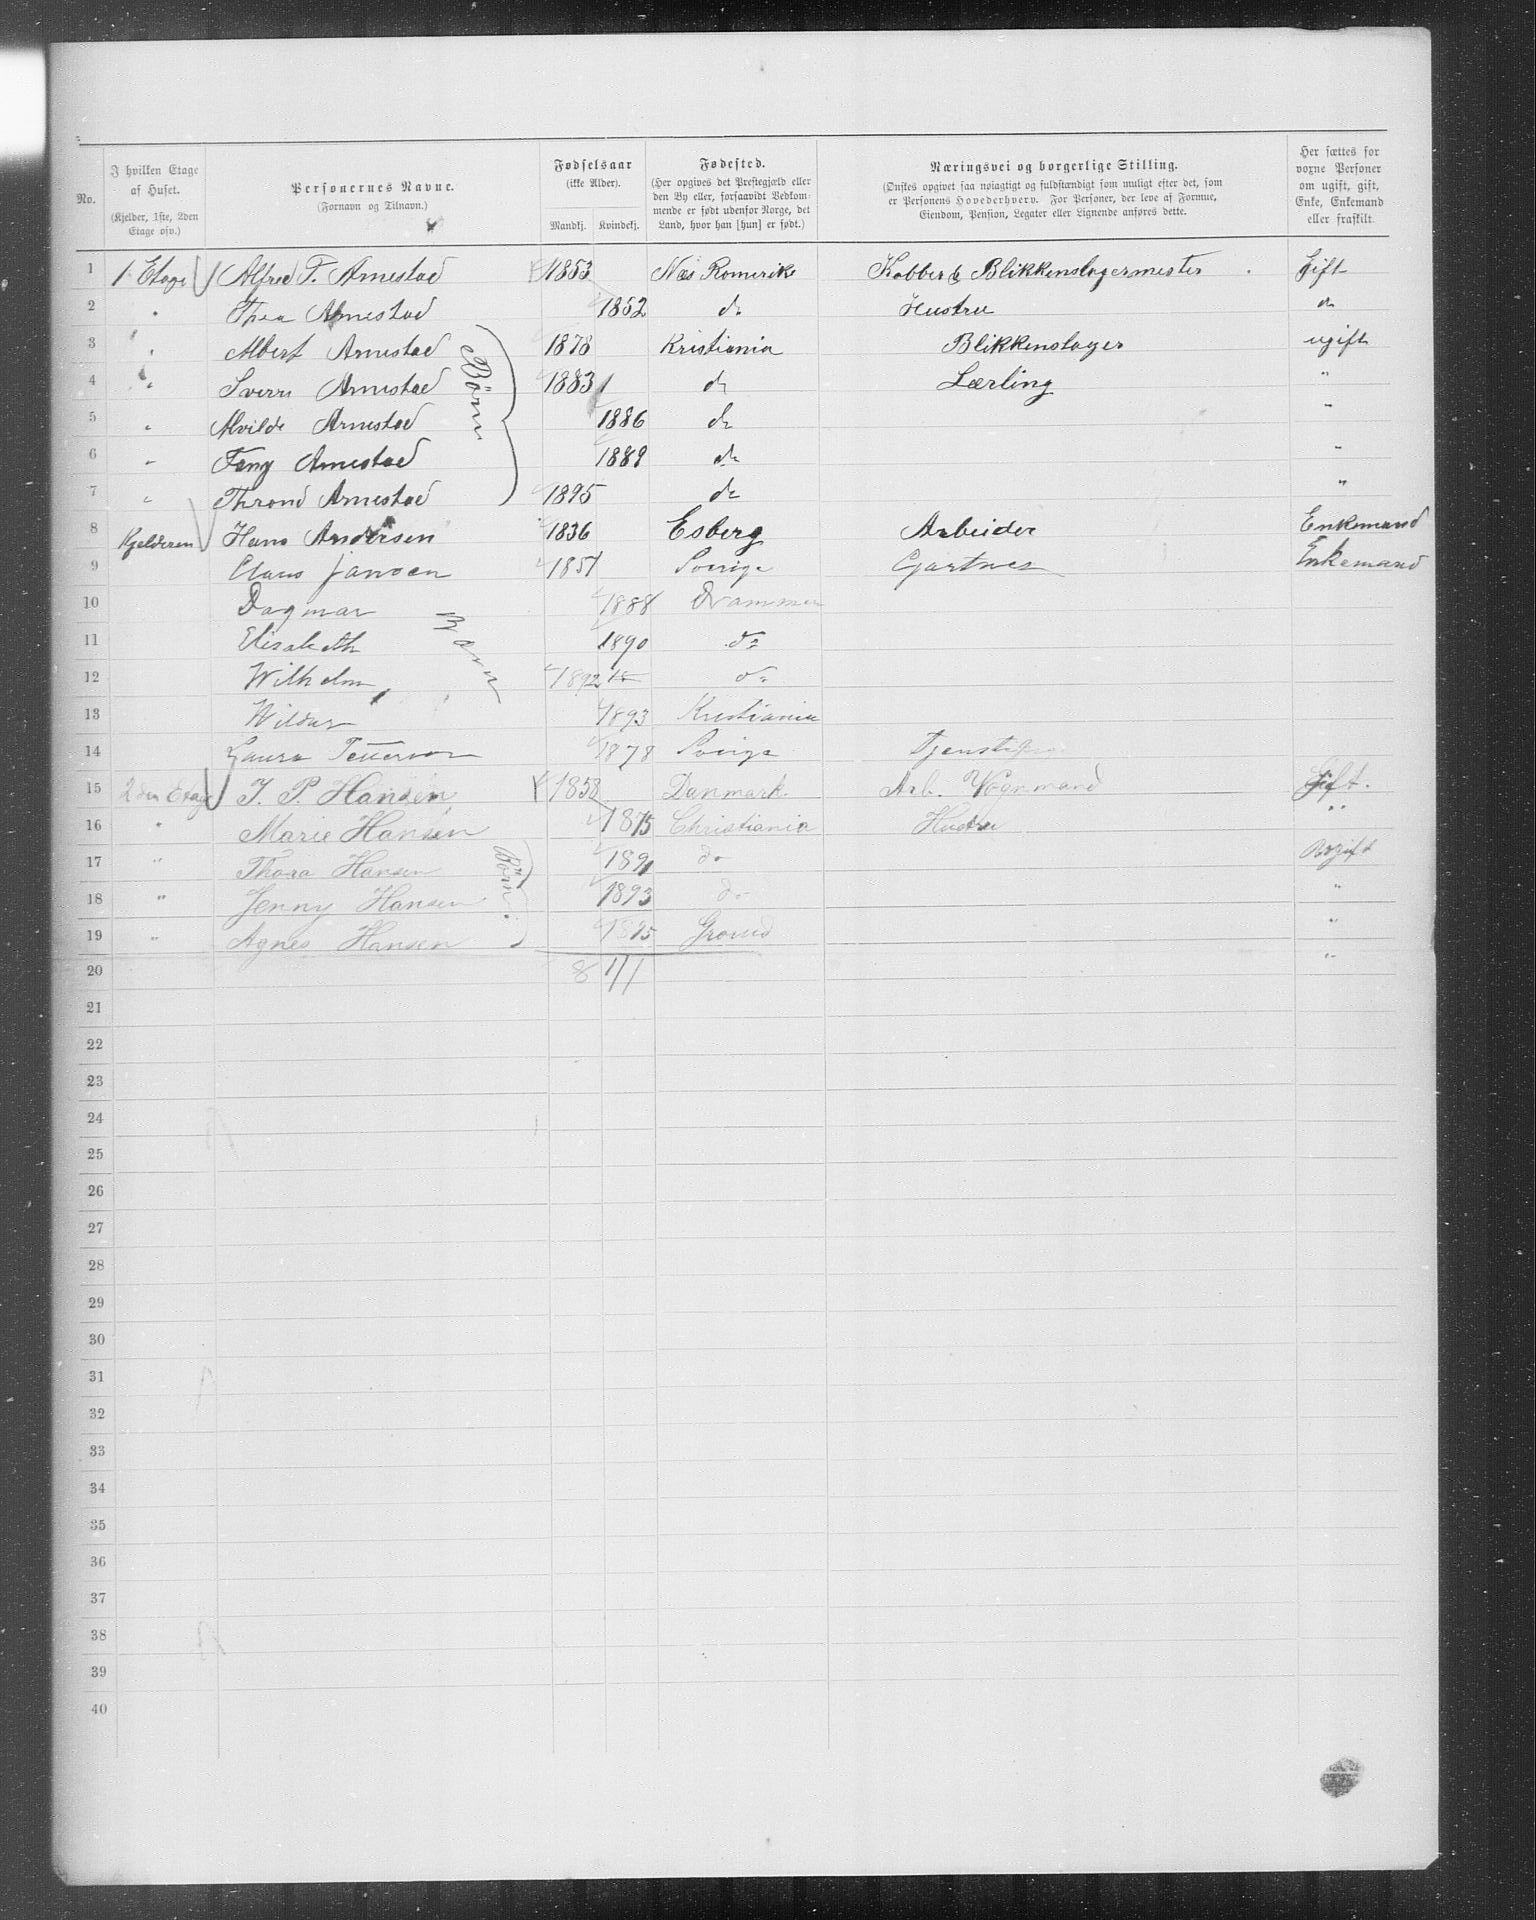 No. | I hvilken Etage af Huset. (Kjelder, 1ste, 2den Etage osv.) | Personernes Navne. (Fornavn og Tilnavn.) | Fødselsaar (ikke Alder). Mandkj. Kvindekj. | Fødested. (Her opgives det Prestegjæld eller den By eller, forsaavidt Vedkommende er født udenfor Norge, det Land, hvor han [hun] er født.) | Næringsvei og borgerlige Stilling. (Ønskes opgivet saa nøiagtigt og fuldstændigt som muligt efter det, som er Personens Hovederhverv. For Personer, der leve af Formue, Eiendom, Pension, Legater eller Lignende anføres dette. | Her sættes for voxne Personer om ugift, gift, Enke, Enkemand eller fraskilt.
1 1 Etage Alfred T. Arnestad 1853 Næs Romerike Kobber & Blikkenslagermester Gift
2 " Thea Arnestad 1852 do Hustru do
3 " Albert Arnestad 1878 Kristiania Blikkenslager ugift
4 " Sverre Arnestad Börn 1883 do Lærling "
5 " Alvilde Arnestad 1886 do "
6 " Fany Arnestad 1889 do "
7 " Thrond Arnestad 1895 do "
8 Kjelderen Hans Andersen 1836 Esberg Arbeider Enkemand
9 Claus Jansen 1851 Sverige Gartner Enkemand
10 Dagmar Børn 1888 Drammen
11 Elisabeth 1890 do
12 Wilhelm 1892 18 do
13 Hildur 1893 Kristiania
14 Laura Petterson 1878 Sverige
15 2den Etage J. P. Hansen 1858 Danmark. Arb. Vognmand Gift.
16 " Marie Hansen 1875 Christiania Hustru "
17 " Thora Hansen Börn 1891 do Ugift
18 " Jenny Hansen 1893 do "
19 " Agnes Hansen 1895 Grorud "
20 8 11 "
21
22
23
24
25
26
27
28
29
30
31
32
33
34
35
36
37
38
39
40